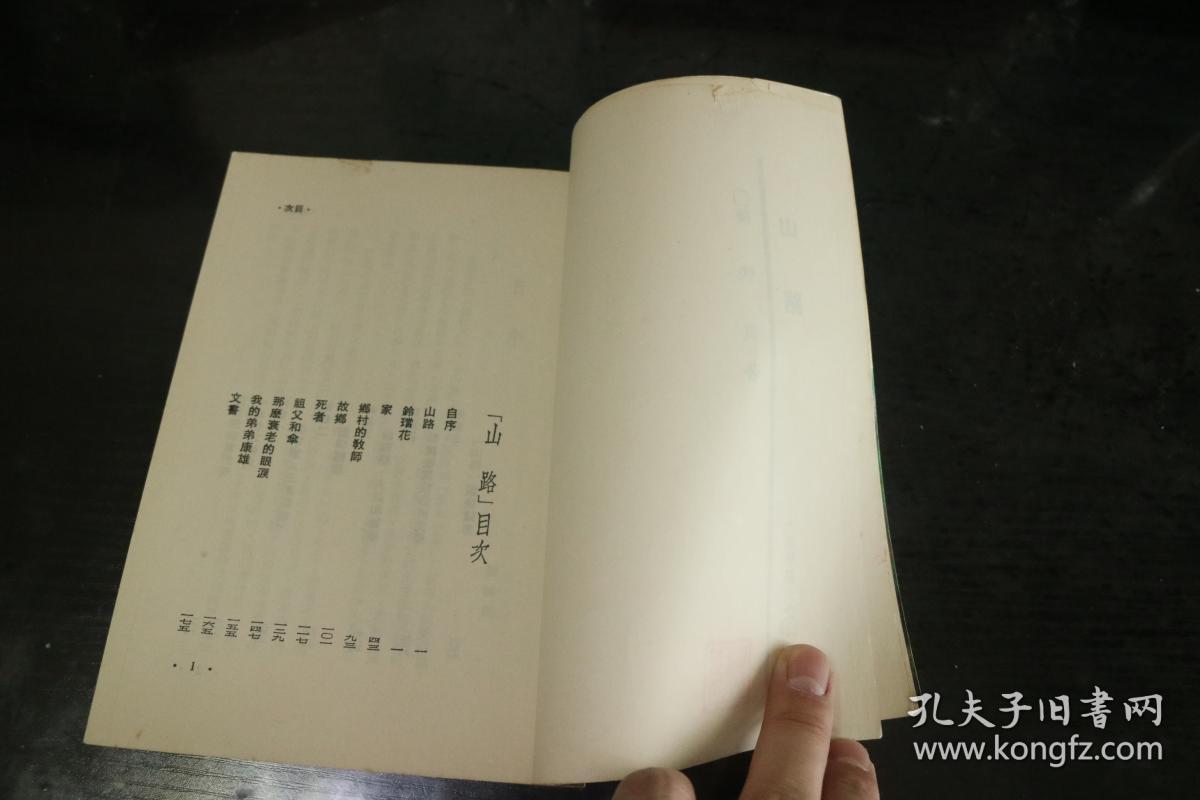 ・目次・
「山 路」目次
自序 一
山路 一
鈴璫花 四三
家 九三
鄉村的教師 一〇一
故鄉 一一七
死者 一二九
祖父和傘 一四七
那麼衰老的眼淚 一五五
我的弟弟康雄 一六五
文書 一七五
・1・
孔夫子旧書网
www.kongfz.com